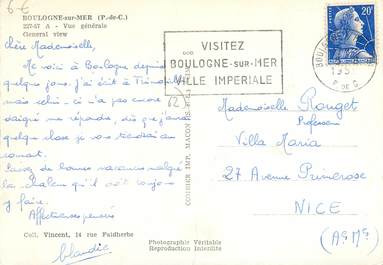 6€
BOULOGNE-sur-MER (P.-de-C.)
227-57 A - Vue générale
General view
Chère Mademoiselle,
Me voici à Boulogne depuis
quelques jours. J'ai écrit à
mais celui-ci n'a pas encore
daigné me répondre, dès que j'aurai
quelque chose je vous tiendrai au
courant.
Passez de bonnes vacances malgré
la chaleur qu'il doit toujours
y faire.
Affectueuses pensées
Coll. Vincent, 14 rue Faidherbe
Claudie
COMBIER IMP. MACON
Photographie Véritable
Reproduction Interdite
VISITEZ
BOULOGNE-SUR-MER
VILLE IMPERIALE
P. DE C.
20F
(62)
Mademoiselle Rouget
Professeur
Villa Maria
27 Avenue Primerose
NICE
(A. M.)